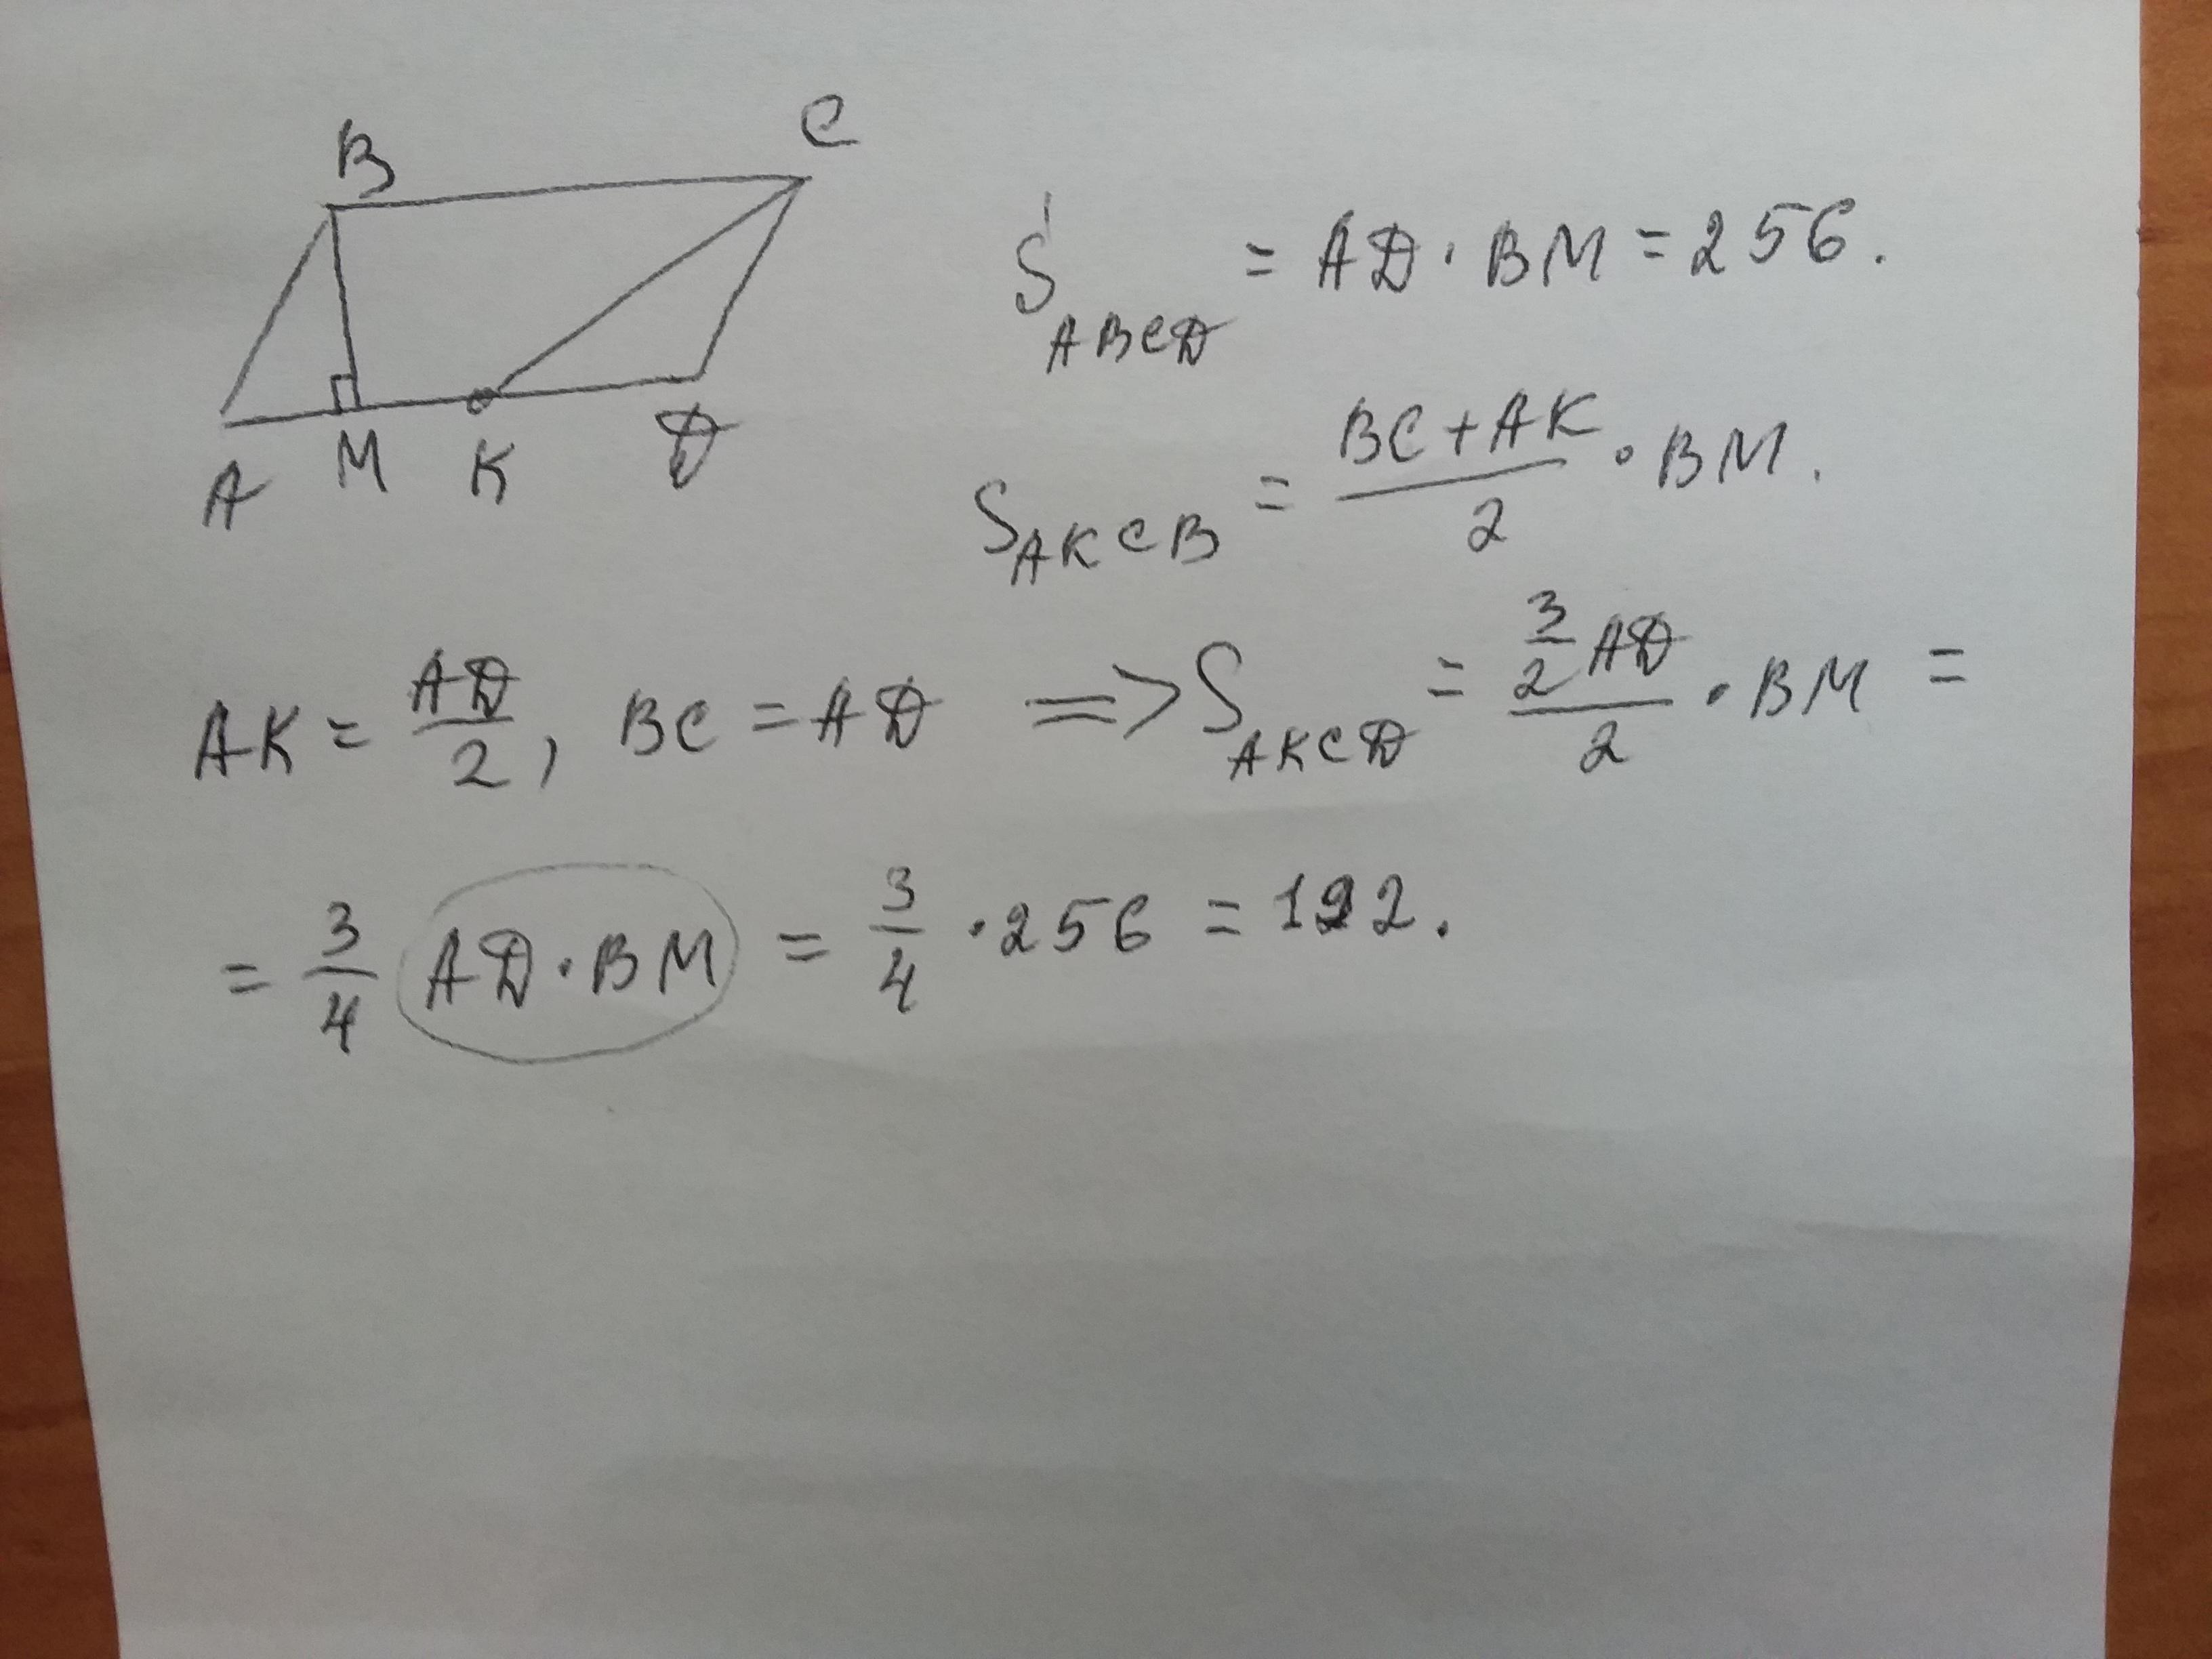 B C
A M K D
S_ABCD = AD · BM = 256.
S_AKCB = (BC + AK)/2 · BM.
AK = AD/2, BC = AD => S_AKCD = (3/2 AD)/2 · BM =
= 3/4 AD · BM = 3/4 · 256 = 192.